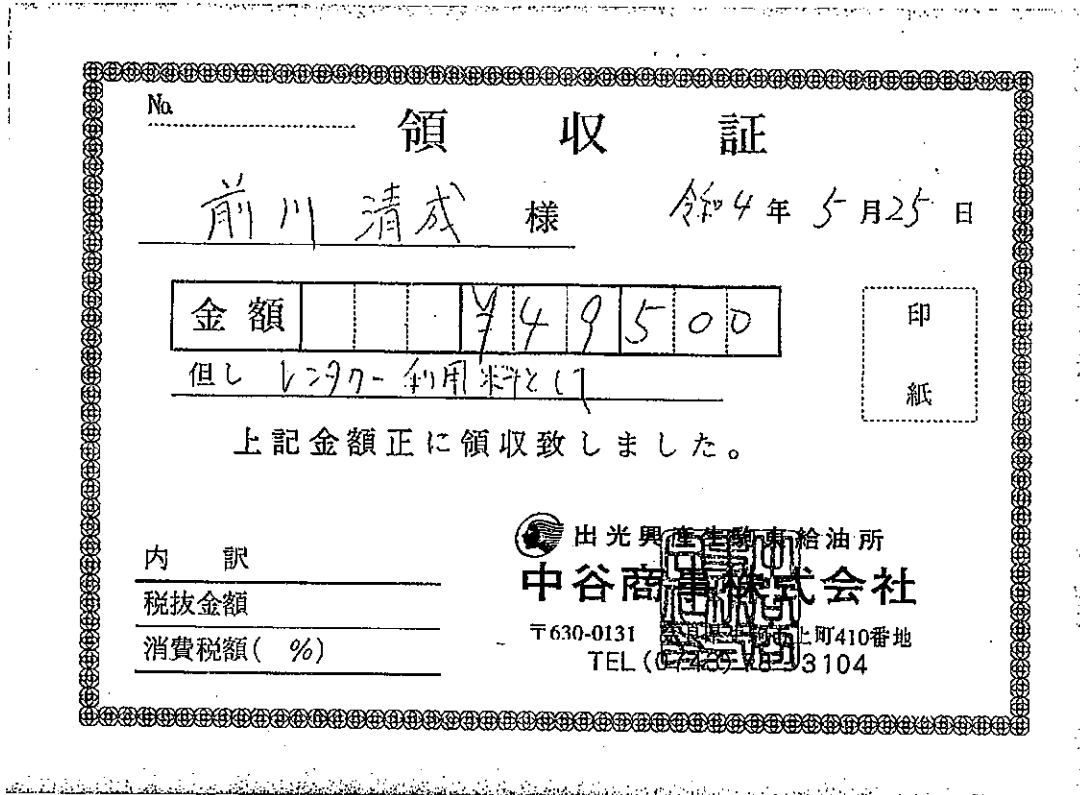 No.
領収証
前川清成 様
令和4年5月25日
金額 ¥49500
但し レンタカー利用料として
印
紙
上記金額正に領収致しました。
内訳
税抜金額
消費税額( %)
出光興産生駒東給油所
中谷商事株式会社
〒630-0131 奈良県生駒市上町410番地
TEL(0743)78-3104